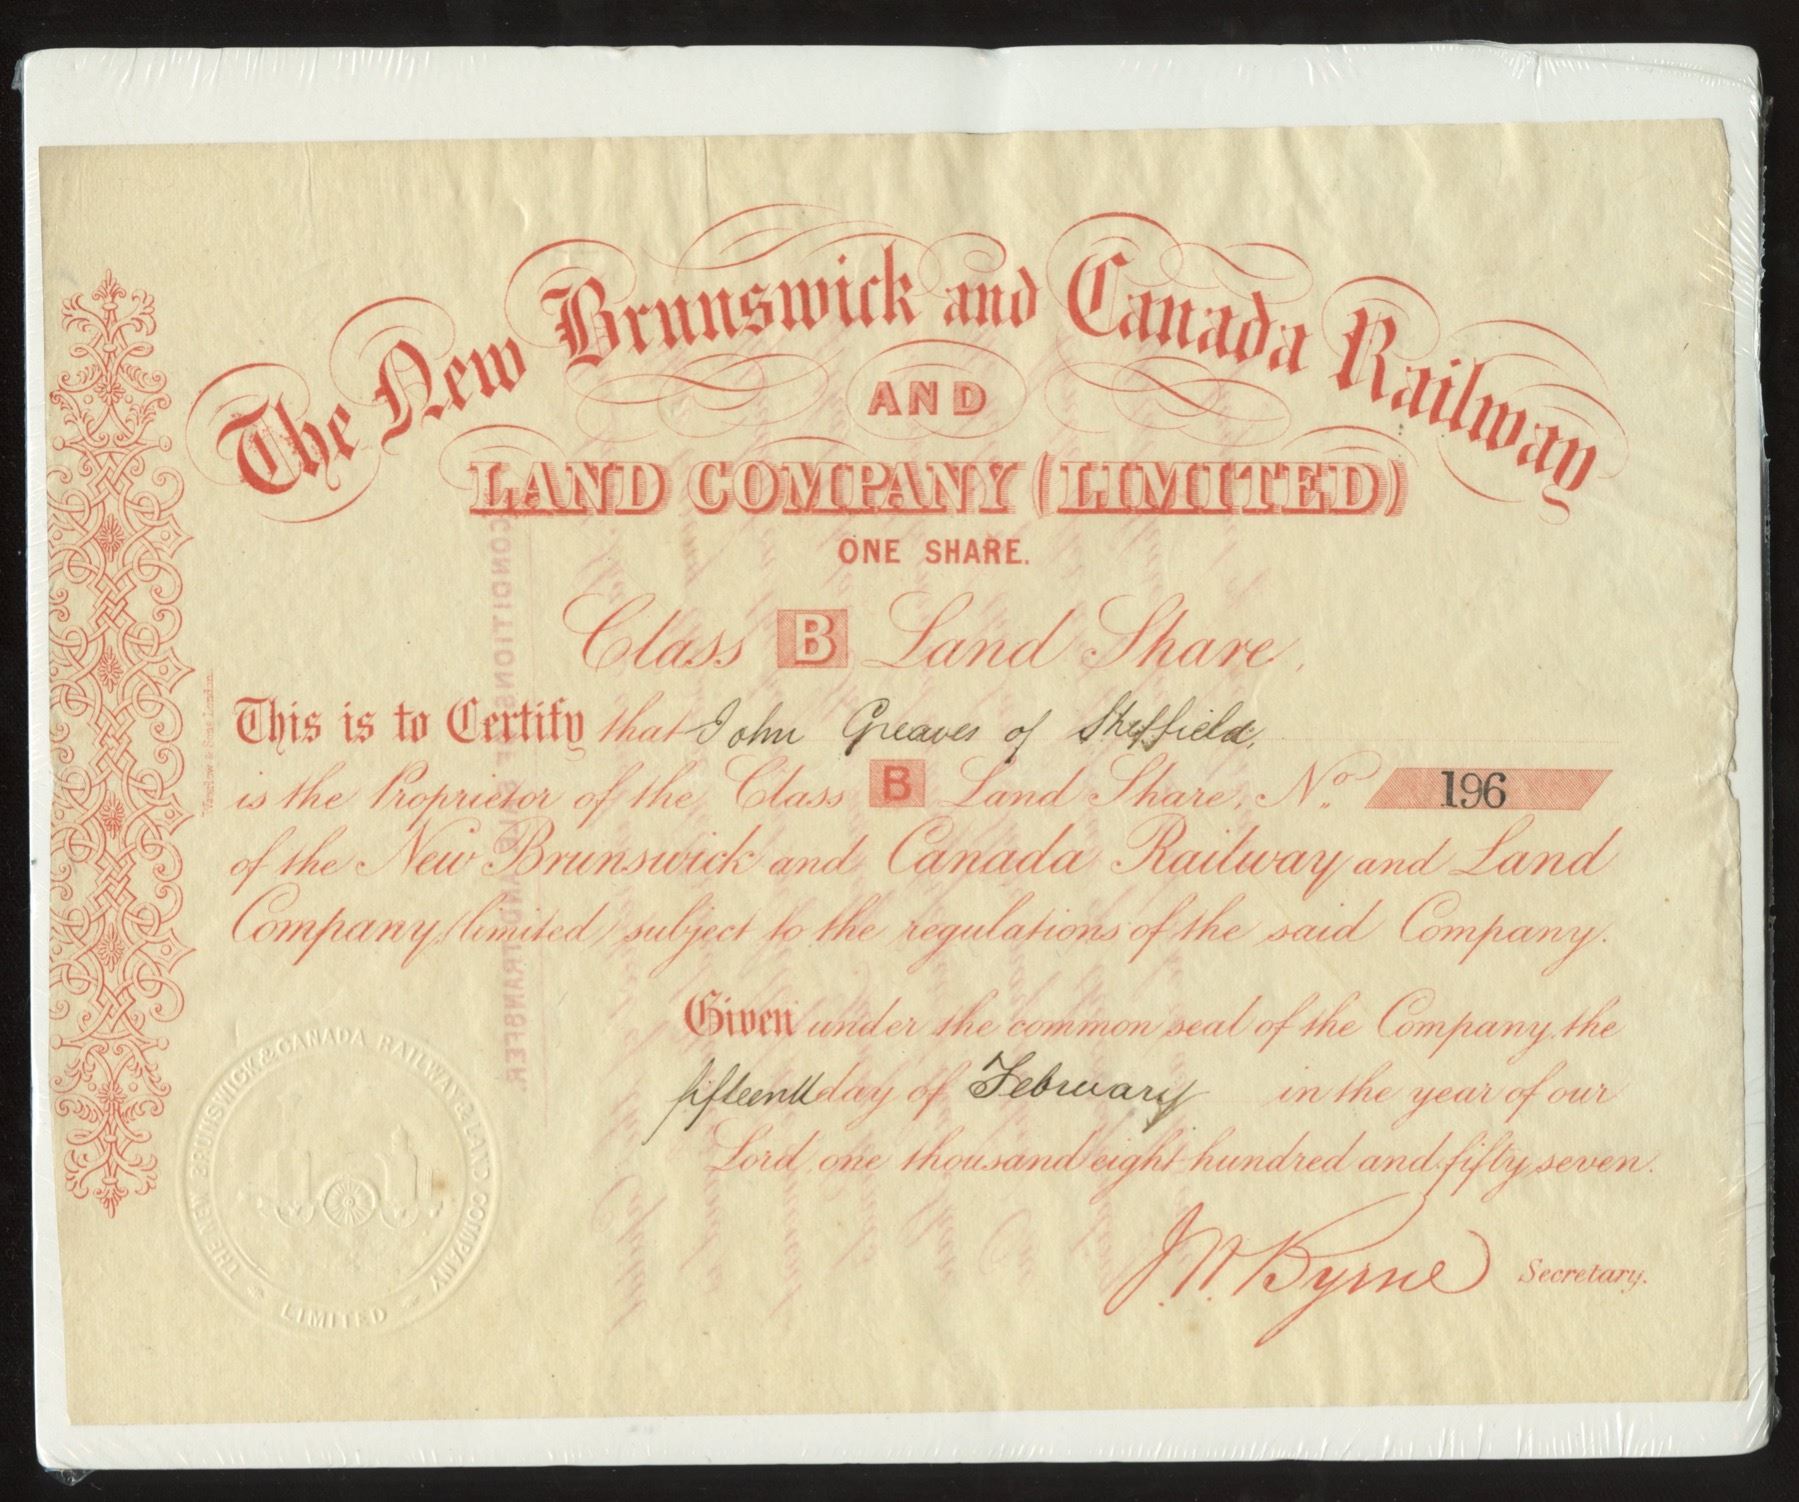 The New Brunswick and Canada Railway
AND
LAND COMPANY (LIMITED)
ONE SHARE.
Class B Land Share.
This is to Certify that John Greaves of Sheffield,
is the Proprietor of the Class B Land Share, No. 196
of the New Brunswick and Canada Railway and Land
Company, (limited) subject to the regulations of the said Company.
Given under the common seal of the Company, the
fifteenth day of February in the year of our
Lord one thousand eight hundred and fifty seven.
J. W. Byrne Secretary.
THE NEW BRUNSWICK & CANADA RAILWAY & LAND COMPANY
LIMITED
& Sons London.
CONDITIONS TRANSFER.